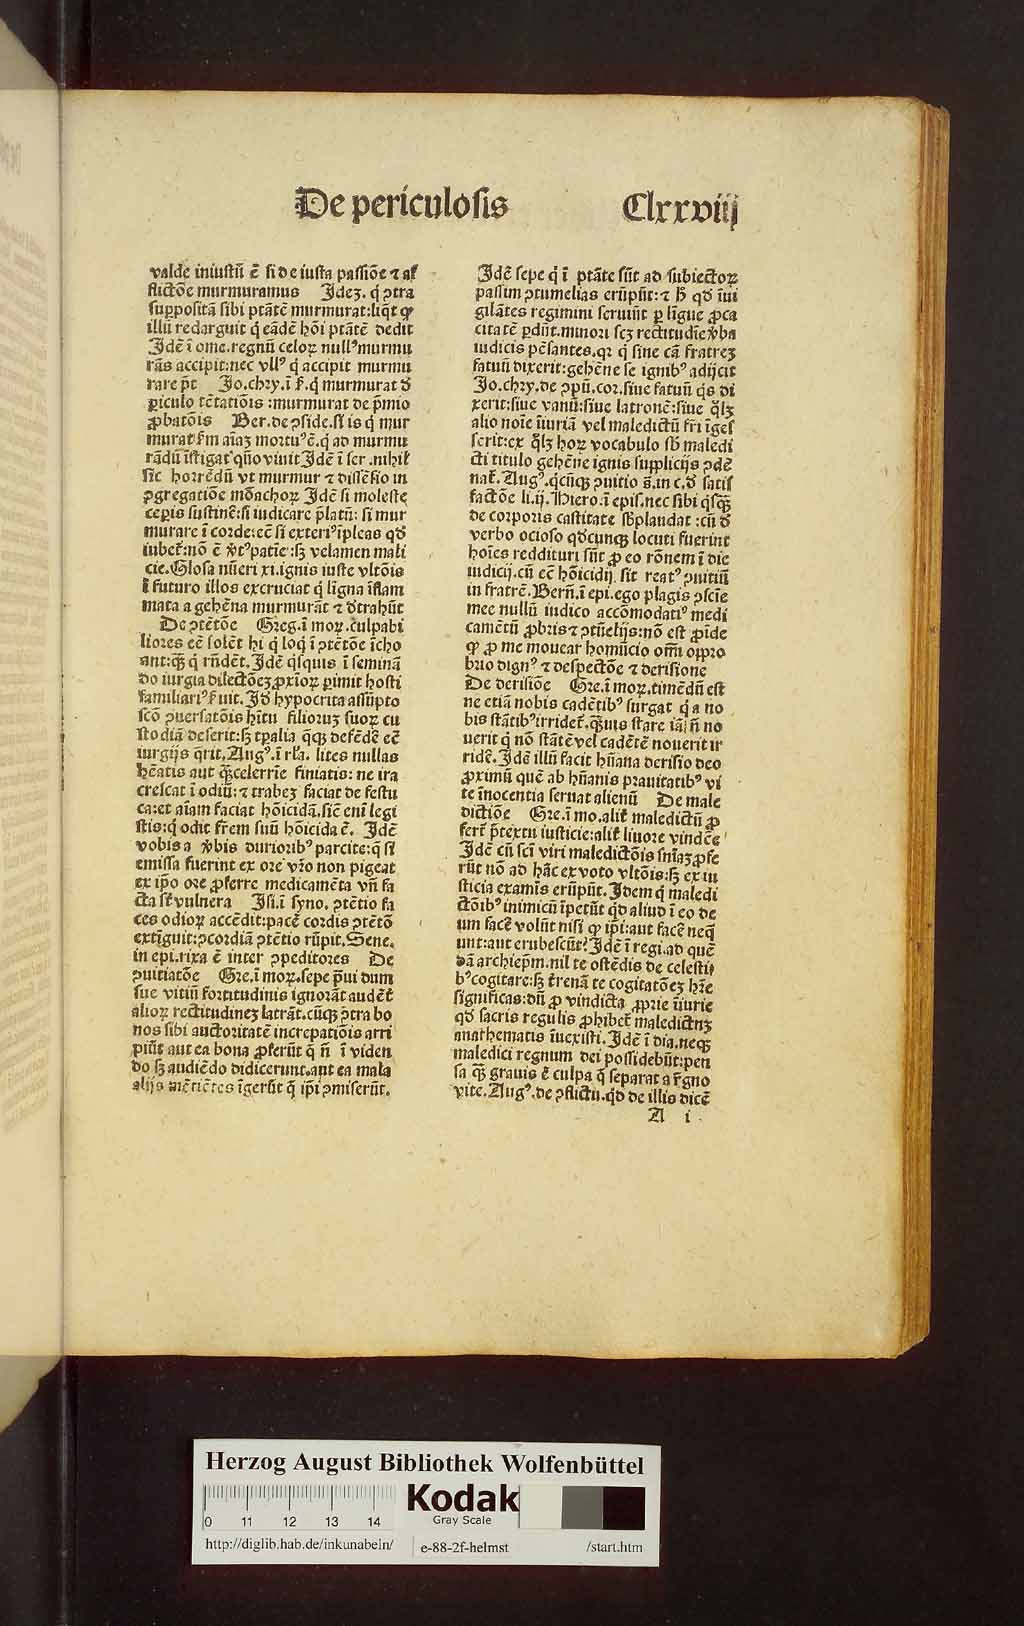 De periculosis Clxxviij
valde iniustū ē si de iusta passiōe ⁊ af
flictōe murmuramus Jdeʒ. q̇ ꝯtra
suppositā sibi ptātē murmurat:liq̄t ꝙ
illū redarguit q̇ eādē hōi ptātē dedit
Jdē ī ome.regnū celoꝝ nullꝰ murmu
rās accipit:nec vllꝰ q̇ accipit murmu
rare pōt Jo.chry.ī .q̇ murmurat d̄
ꝑiculo tētatiōis :murmurat de p̄mio
ꝓbatōis Ber.de ꝯside.si is q̇ mur
murat am̄ aīaʒ mortuꝰ ē.q̇ ad murmu
rādū īstigat quō viuit Jdē ī ser .nihil
sic horrēdū vt murmur ⁊ dissēsio in
ꝯgregatiōe mōachoꝝ Jdē si moleste
ceperis sustinē:si iudicare p̄latū: si mur
murare ī corde:ec̄ si exteriꝰ īpleas qd̄
iubet:nō ē patīe:sʒ velamen mali
cie.Glosa nūeri xi.ignis iuste vltōis
ī futuro illos excruciat q̇ līgna īflam
mata a gehēna murmurāt ⁊ d̄trahūt
De ꝯtētōe Greg.ī moꝝ.culpabi
liores ec̄ solēt hi q̇ loq̇ ī ꝯtētōe īcho
ant:q̄ʒ q̇ rn̄dēt.Jdē q̇squis ī seminā
do iurgia dilectōeʒ ꝓxioꝝ ꝑimit hosti
familiariꝰ ẜuit. Jd̄ hypocrita assūpto
scō ꝯuersatōis hītu filioruʒ suoꝝ cu
stodiā deserit:sʒ tp̄alia q̄qʒ defēdē ec̄
iurgijs q̄rit.Augꝰ.ī rl̄a. lites nullas
hēatis aut q̄ʒ celerrie finiatis: ne ira
crescat ī odiū:⁊ trabeʒ faciat de festu
ca:et aīam faciat hōicidā.sic eni legi
stis:q̇ odit frem suū hōicida ē. Jdē
vobis a v̄bis durioribꝰ parcite:q̄ si
emissa fuerint ex ore vr̄o non pigeat
ex ip̄o ore ꝓferre medicamēta vn̄ fa
cta sūt vulnera Jsi.ī syno. ꝯtētio fa
ces odioꝝ accēdit:pacē cordis ꝯtētō
extīguit:ꝯcordiā ꝯtētio rūpit.Sene.
in epi.rixa ē inter ꝯpeditores De
ꝯuitiatōe Gre.ī moꝝ.sepe p̄ui dum
sue vitiū fortitudinis ignorāt audēt
alioꝝ rectitudineʒ latrāt.cūqʒ ꝯtra bo
nos sibi auctoritatē increpatiōis arri
piūt aut ea bona ꝓferūt q̄ n̄ ī viden
do sʒ audiēdo didicerunt.aut ea mala
alijs mētiētes īgerūt q̄ ip̄i ꝯmiserūt.
Jdē sepe q̇ ī ptāte sūt ad subiectoꝝ
passim ꝯtumelias erūpūt:⁊ hͦ qd̄ īui
gilātes regimini seruiūt ꝑ līgue ꝓca
citatē ꝑdūt.minori scʒ rectitudīe v̄ba
iudicis pēsantes.qꝛ q̇ sine cā fratreʒ
fatuū dixerit:gehēne se ignibꝰ adijcit
Jo.chry.de ꝯpū.cor.siue fatuū q̇s di
xerit:siue vanū:siue latronē:siue q̄lʒ
alio noīe īiuriā vel maledictū fri īges
serit:ex q̄lʒ hoꝝ vocabulo sb̄ maledi
cti titulo gehēne ignis supplicijs ꝯdē
nat̄. Augꝰ.q̇cūqʒ ꝯuitio ā.in c.d̄ satis
factōe li.ij. Hiero.ī epis.nec sibi q̇sq̄ʒ
de corporis castitate sb̄plaudat :cū d̄
verbo ocioso qd̄cunqʒ locuti fuerint
hoīes reddituri sūt ꝓ eo rōnem ī die
iudicij.cū ec̄ hōicidij sit reatꝰ ꝯuitiū
in fratrē. Bern̄.ī epi.ego plagis ꝯscīe
mee nullū iudico accōmodatiꝰ medi
camētū ꝓbris ⁊ ꝯtūelijs:nō est ꝓīde
ꝙ ꝓ me mouear homūcio omī oppro
brio dignꝰ ⁊ despectōe ⁊ derisione
De derisiōe Gre.ī moꝝ.timēdū est
ne etiā nobis cadētibꝰ surgat q̇ a no
bis stātibꝰ irridet̄.q̄uis stare iā n̄ no
uerit q̇ nō stātē vel cadētē nouerit ir
ridē.Jdē illū facit hūana derisio deo
ꝓximū quē ab hūanis prauitatibꝰ vi
te īnocentia seruat alienū De male
dictiōe Gre.ī mo.alit̄ maledictū ꝓ
fert p̄textu iusticie:alit̄ liuore vindēe
Jdē cū scī viri maledictōis sn̄iaʒ ꝓfe
rūt nō ad hāc ex voto vltōis:sʒ ex iu
sticia examīs erūpūt. Jdem q̇ maledi
ctōibꝰ inimicū īpetūt qd̄ aliud ī eo de
um facē volūt nisi ꝙ ip̄i:aut facē neq̄
unt:aut erubescūt? Jdē ī regi.ad quē
dā archiep̄m.nil te ostēdis de celesti
bꝰ cogitare:sʒ t̄renā te cogitatōeʒ hr̄e
significas:dū ꝓ vindicta ꝓprie īiurie
qd̄ sacris regulis ꝓhibet̄ maledictuʒ
anathematis īuexisti. Jdē ī dia.neqʒ
maledici regnum dei possidebūt:pen
sa q̄ʒ grauis ē culpa q̄ separat a r̄gno
vite.Augꝰ.de ꝯflictu.qd̄ de illis dicē
A i
Herzog August Bibliothek Wolfenbüttel
0 11 12 13 14
Kodak
Gray Scale
http://diglib.hab.de/inkunabeln/ e-88-2f-helmst /start.htm